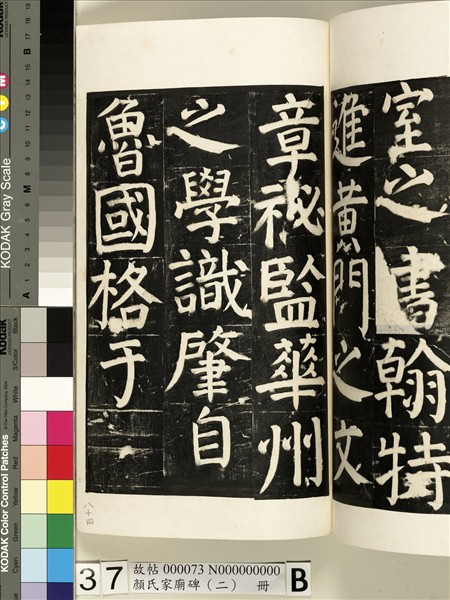 室之書翰特
進黃門之文
章祕監華州
之學識肇自
魯國格于
四十八
37
故帖 000073 N000000000
顏氏家廟碑（二） 冊
B
KODAK Gray Scale
C
M
A 1 2 3 4 5 6 M 8 9 10 11 12 13 14 15 B 17 18 19
Kodak
KODAK Color Control Patches
Blue
Cyan
Green
Yellow
Red
Magenta
White
3/Color
Black